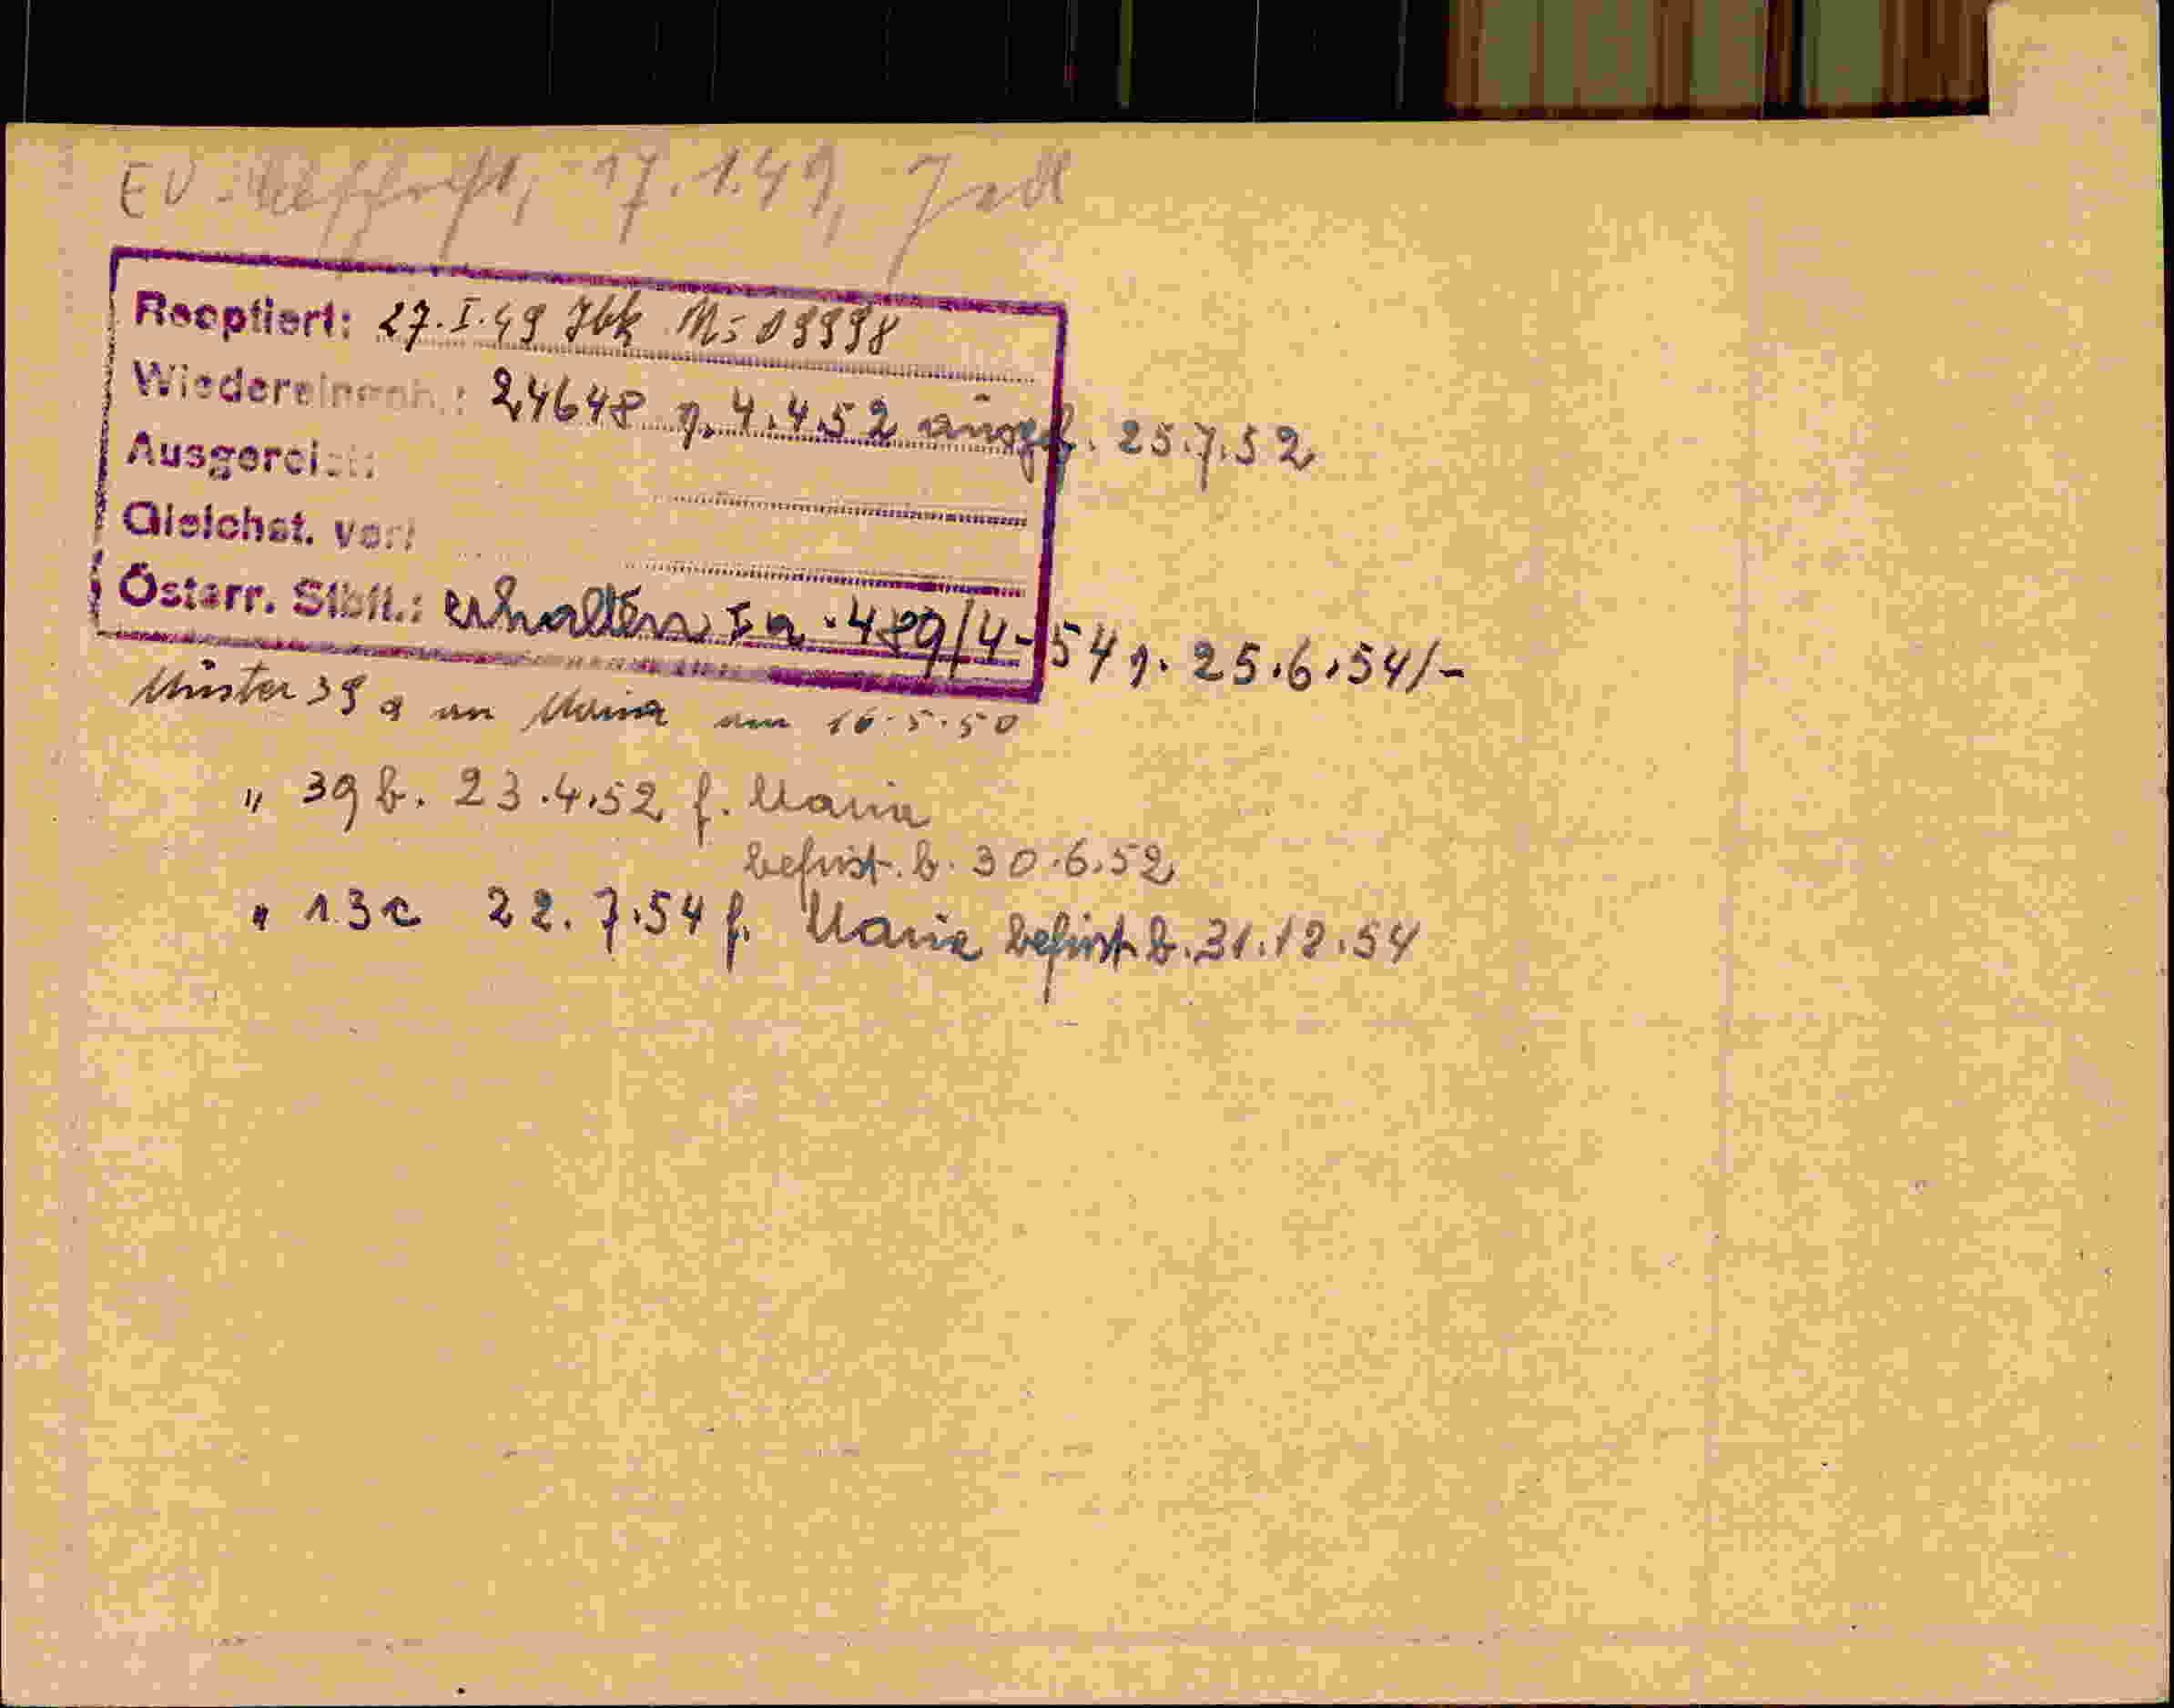 EV- 17.1.49,
Reoptiert: 27.I.49 Jbk
Wiedereingeb.: 24648 v. 4.4.52 ausgef. 25.7.52
Ausgereist:
Gleichst. vor:
Österr. Stbft.: erhalten Ia-489/4-54 v. 25.6.54/-
Muster 39 a an Maria am 16.5.50
" 39 b. 23.4.52 f. Maria
befrist. b. 30.6.52
" 13c 22.7.54 f. Maria befrist b. 31.12.54